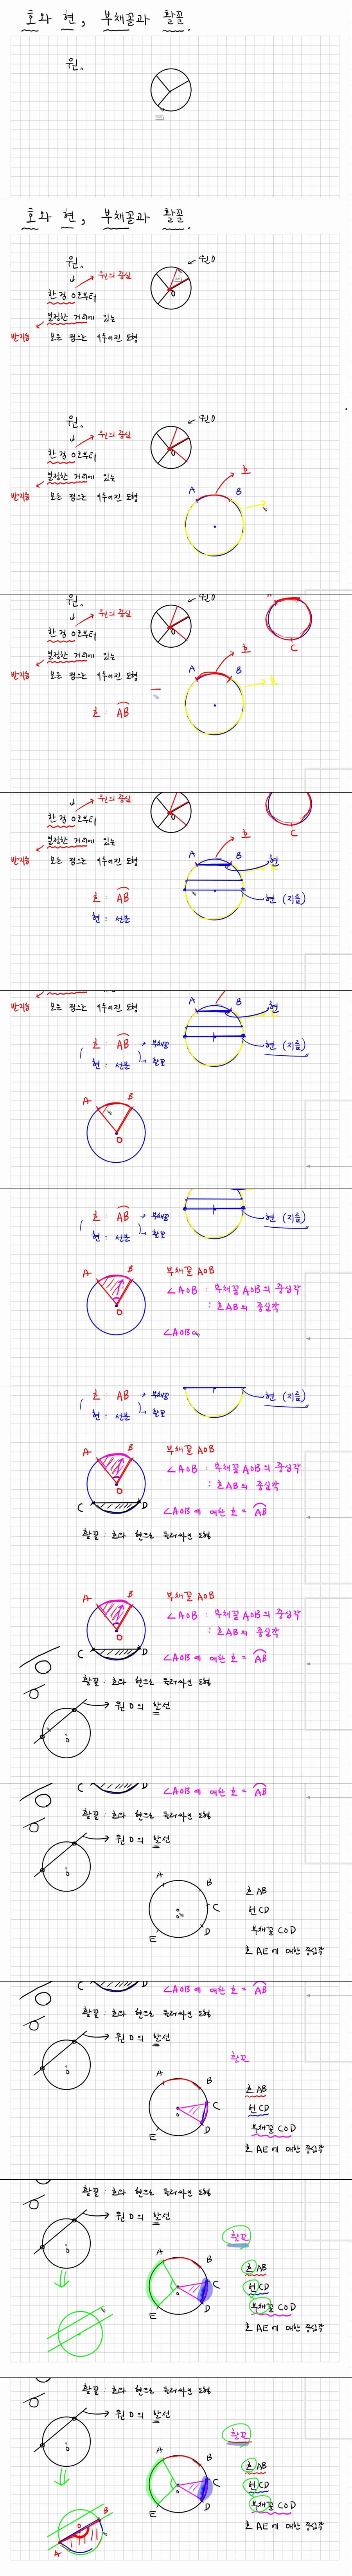 호와 현, 부채꼴과 활꼴.
원。
호와 현, 부채꼴과 활꼴.
원。
원O
원의 중심
O
한 점 O로부터
일정한 거리에 있는
반지름
모든 점으로 이루어진 도형
원。
원의 중심
원O
O
한 점 O로부터
일정한 거리에 있는
호
반지름
모든 점으로 이루어진 도형
A
B
호
원。
원의 중심
원O
O
한 점 O로부터
C
일정한 거리에 있는
호
반지름
모든 점으로 이루어진 도형
A
B
호
호 : AB
원의 중심
O
한 점 O로부터
C
일정한 거리에 있는
호
반지름
모든 점으로 이루어진 도형
A
B
현
호 : AB
현 : 선분
현 (지름)
반지름
모든 점으로 이루어진 도형
A
B
현
호 : AB → 부채꼴
현 : 선분 → 활꼴
현 (지름)
A
B
O
호 : AB → 부채꼴
현 : 선분 → 활꼴
현 (지름)
A
B
O
부채꼴 AOB
∠AOB : 부채꼴 AOB의 중심각
: 호AB의 중심각
∠AOB
호 : AB → 부채꼴
현 : 선분 → 활꼴
현 (지름)
A
B
O
C
D
부채꼴 AOB
∠AOB : 부채꼴 AOB의 중심각
: 호AB의 중심각
∠AOB에 대한 호 = AB
활꼴 : 호와 현으로 둘러싸인 도형
A
B
O
C
D
부채꼴 AOB
∠AOB : 부채꼴 AOB의 중심각
: 호AB의 중심각
∠AOB에 대한 호 = AB
활꼴 : 호와 현으로 둘러싸인 도형
원 O의 할선
O
D
∠AOB에 대한 호 = AB
활꼴 : 호와 현으로 둘러싸인 도형
원 O의 할선
O
A
B
C
D
E
O
호 AB
현 CD
부채꼴 COD
호 AE에 대한 중심각
D
∠AOB에 대한 호 = AB
활꼴 : 호와 현으로 둘러싸인 도형
원 O의 할선
O
활꼴
A
B
C
D
E
O
호 AB
현 CD
부채꼴 COD
호 AE에 대한 중심각
활꼴 : 호와 현으로 둘러싸인 도형
원 O의 할선
O
활꼴
A
B
C
D
E
O
호 AB
현 CD
부채꼴 COD
호 AE에 대한 중심각
활꼴 : 호와 현으로 둘러싸인 도형
원 O의 할선
O
활꼴
A
B
C
D
E
O
호 AB
현 CD
부채꼴 COD
호 AE에 대한 중심각
A
B
O